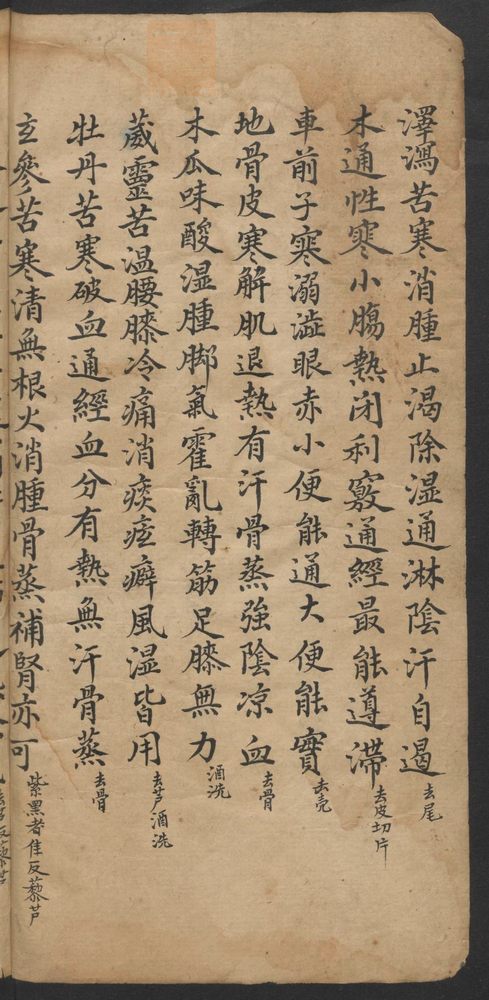 澤瀉苦寒消腫止渴除湿通淋陰汗自遏 去尾
木通性寒小膓熱閉利竅通經最能導滯 去皮切片
車前子寒溺澁眼赤小便能通大便能實 去壳
地骨皮寒解肌退熱有汗骨蒸強陰凉血 去骨
木瓜味酸湿腫脚氣霍亂轉筋足膝無力 酒洗
葳靈苦温腰膝冷痛消痰痃癖風湿皆用 去芦酒洗
牡丹苦寒破血通經血分有熱無汗骨蒸 去骨
玄參苦寒清無根火消腫骨蒸補腎亦可 紫黑者佳反藜芦